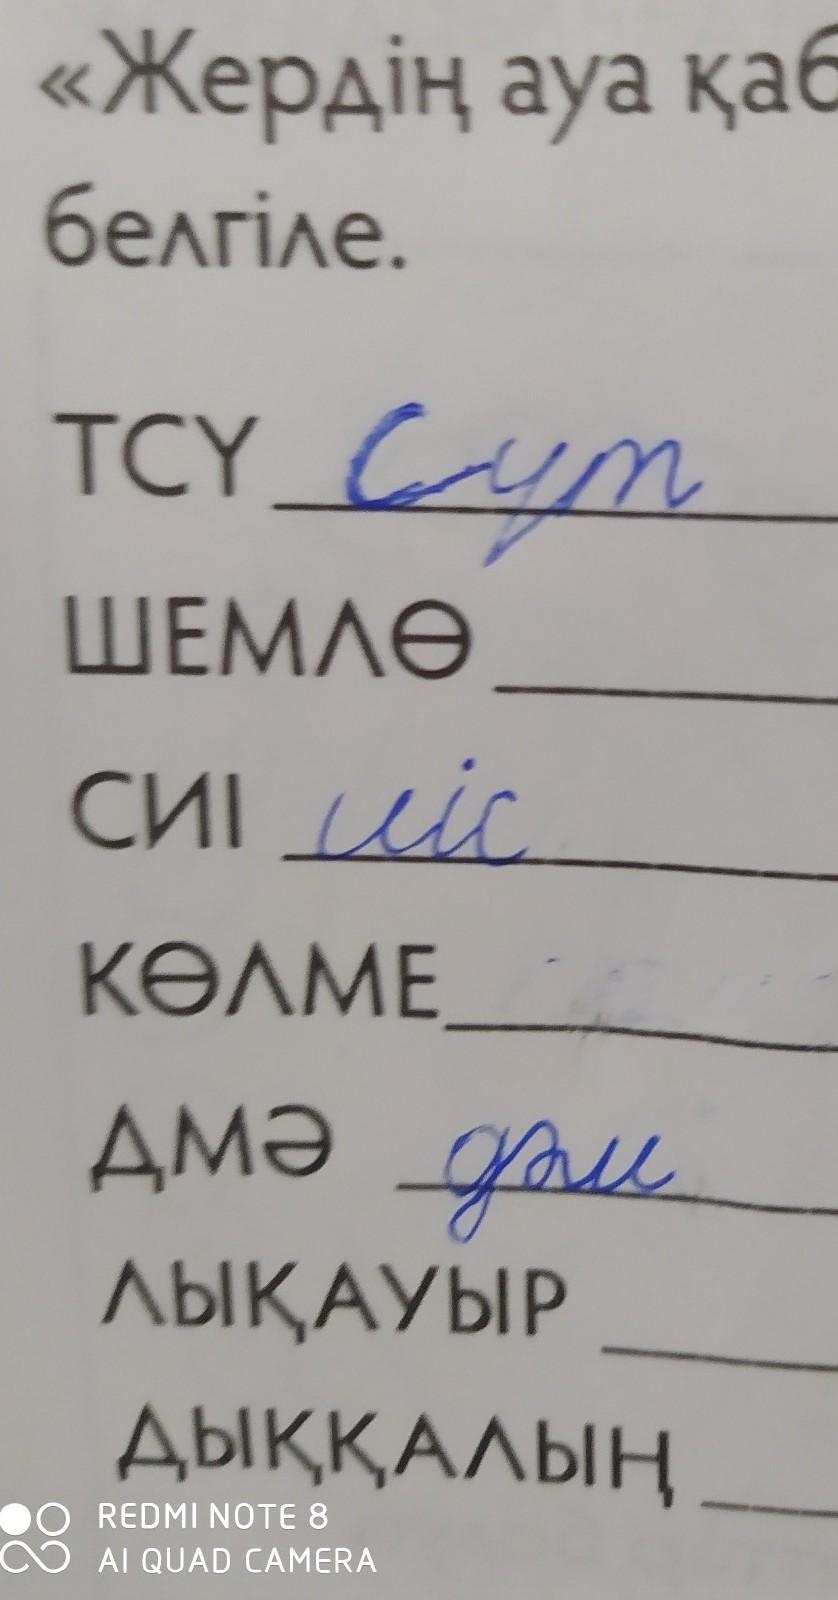 «Жердің ауа қаб
белгіле.
ТСҮ сүт
ШЕМЛӨ
СИІ иіс
КӨЛМЕ
ДМӘ дәм
ЛЫҚАУЫР
ДЫҚҚАЛЫҢ
REDMI NOTE 8
AI QUAD CAMERA